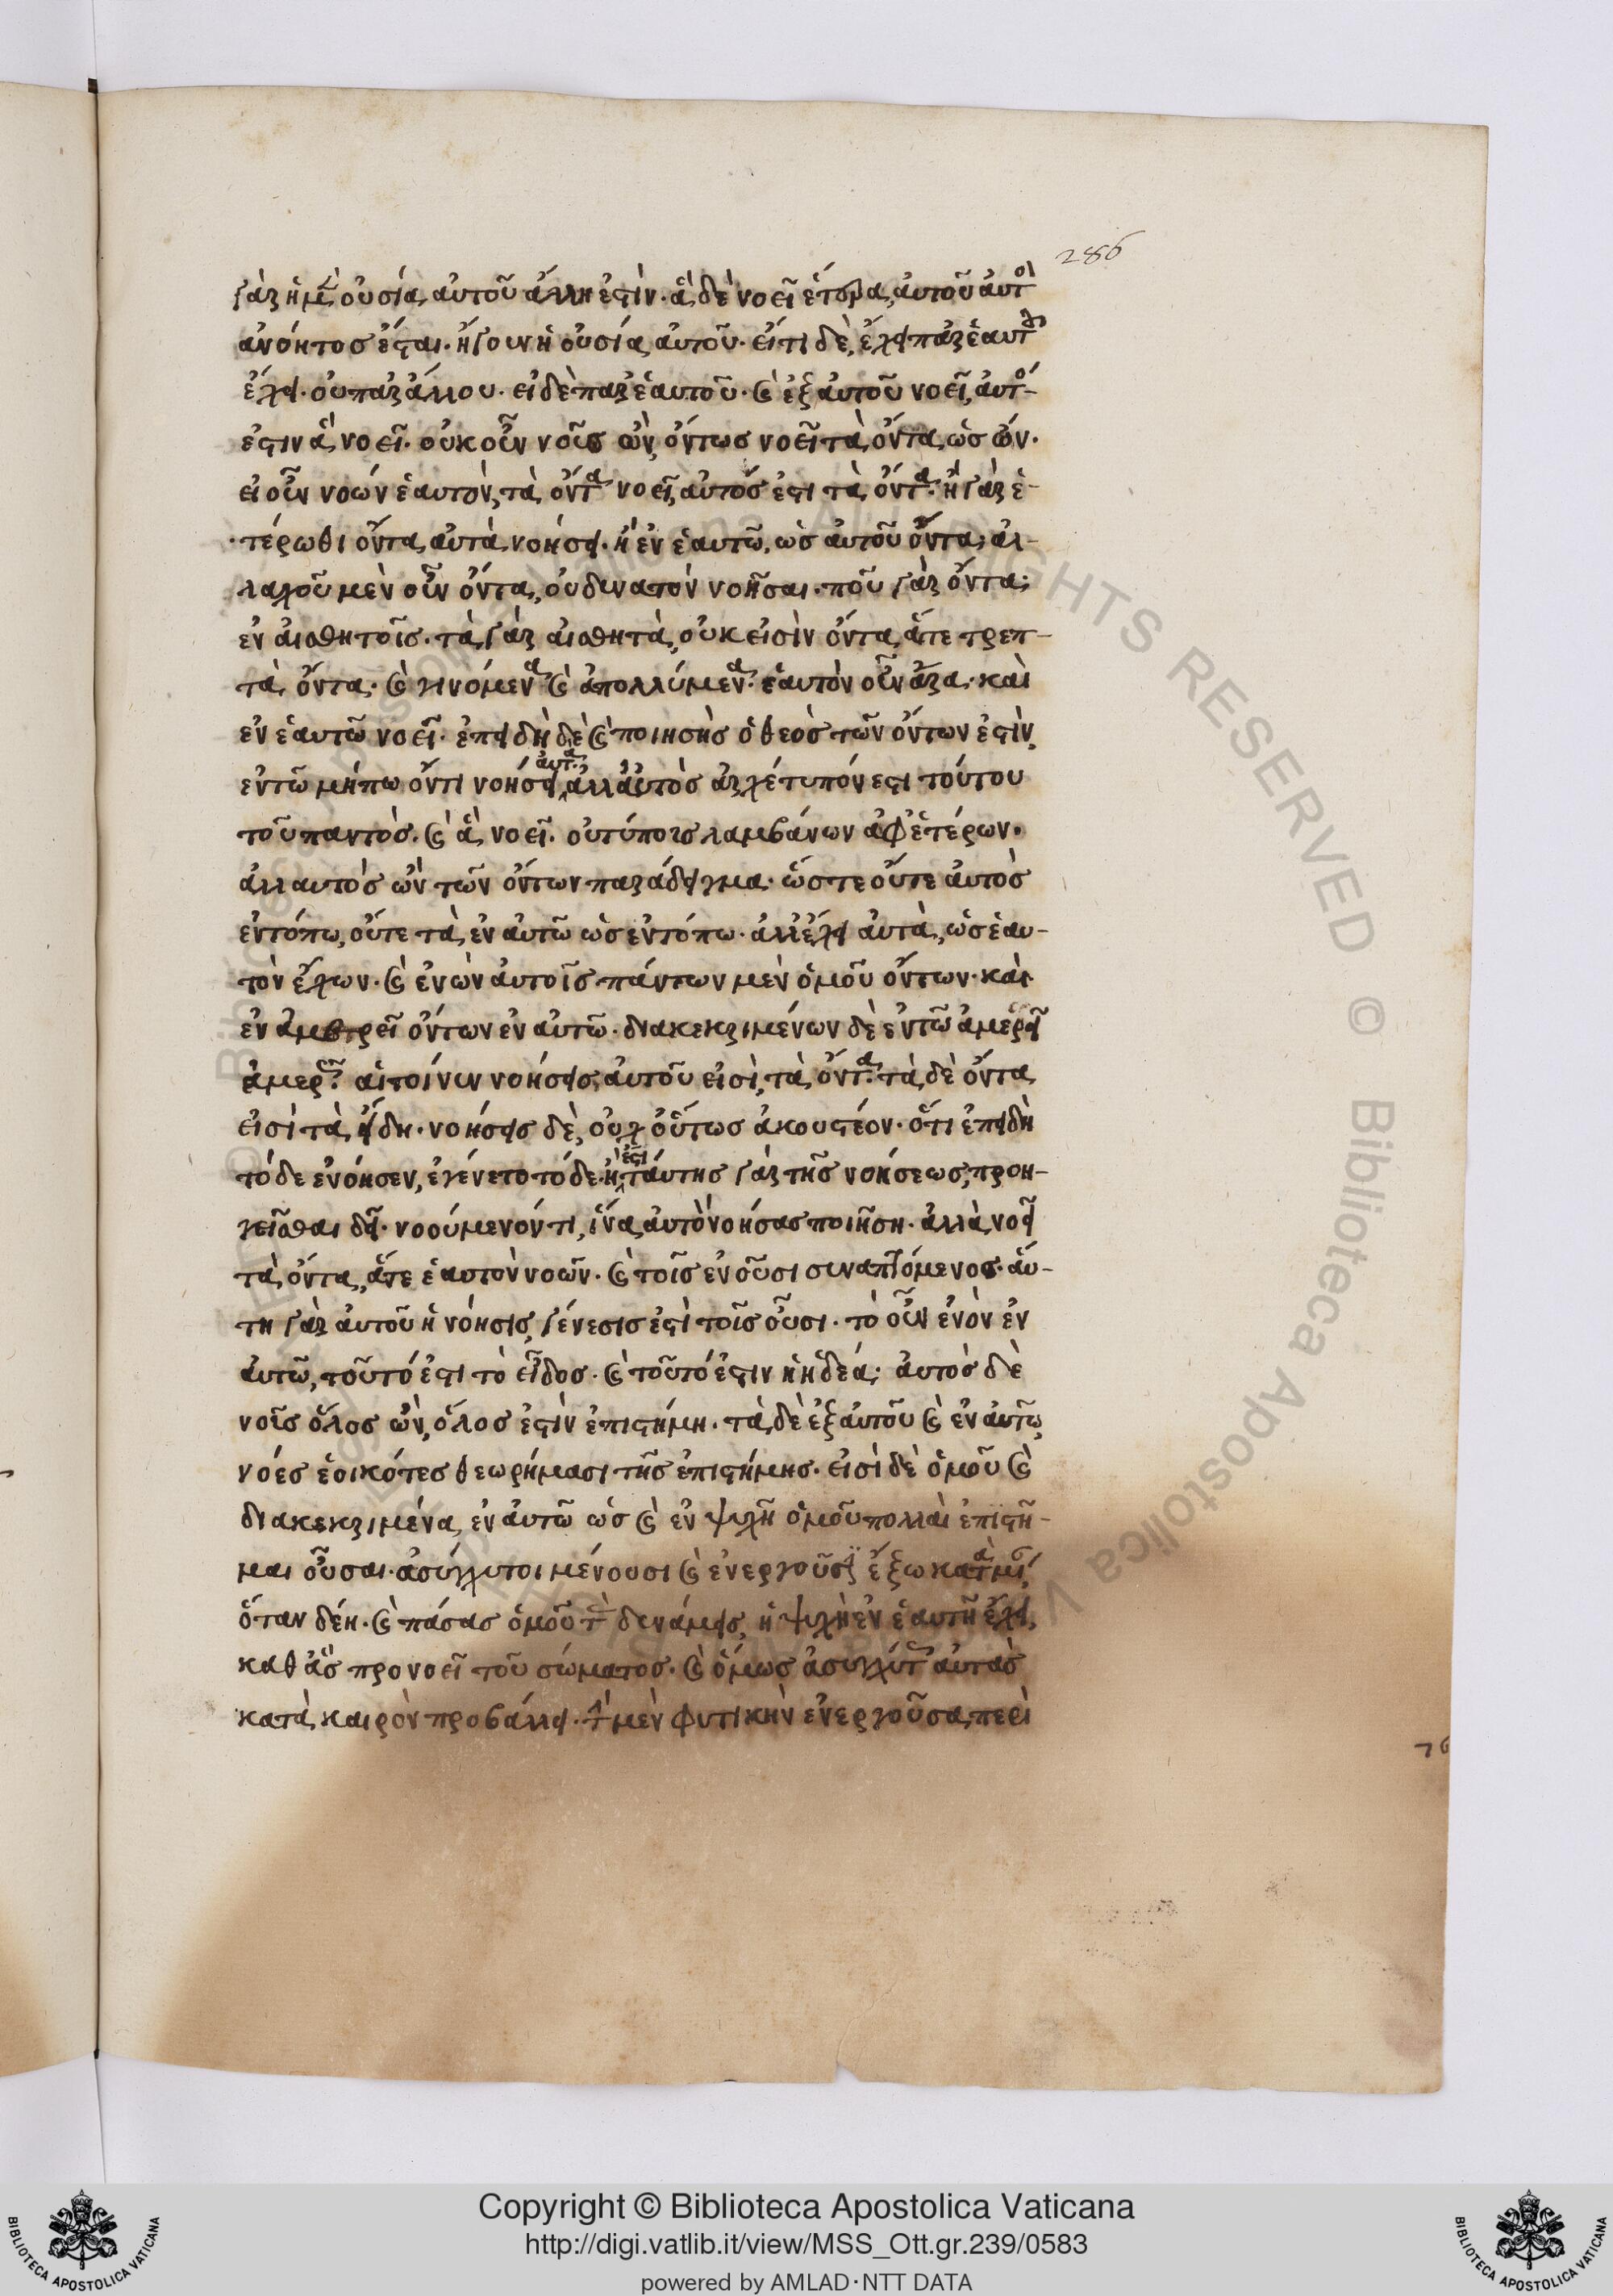 286
γὰρ ἡ μὲν οὐσία αὐτοῦ ἄλλη ἐστίν· ἃ δὲ νοεῖ ἕτερα αὐτοῦ αὐτὸς
ἀνόητος ἔσται· ἤγουν ἡ οὐσία αὐτοῦ· εἴ τι δὲ ἔχει παρ ἑαυτοῦ
ἔχει· οὐ παρ ἄλλου· εἰ δὲ παρ ἑαυτοῦ· καὶ ἐξ αὐτοῦ νοεῖ, αὐτός
ἐστιν ἃ νοεῖ· οὐκοῦν νοῦς ὢν, ὄντως νοεῖ τὰ ὄντα, ὡς ὤν·
εἰ οὖν νοῶν ἑαυτὸν, τὰ ὄντα νοεῖ, αὐτός ἐστι τὰ ὄντα· ἢ γὰρ ἑ-
τέρωθι ὄντα αὐτὰ νοήσει· ἢ ἐν ἑαυτῶ, ὡς αὐτοῦ ὄντα; ἀλ-
λαχοῦ μὲν οὖν ὄντα, οὐ δυνατὸν νοῆσαι· ποῦ γὰρ ὄντα;
ἐν αἰσθητοῖς· τὰ γὰρ αἰσθητὰ, οὐκ εἰσὶν ὄντα, ἅτε τρεπ-
τὰ ὄντα· καὶ γινόμενα καὶ ἀπολλύμενα· ἑαυτὸν οὖν ἄρα· καὶ
ἐν ἑαυτῶ νοεῖ· ἐπειδὴ δὲ καὶ ποιητὴς ὁ θεὸς τῶν ὄντων ἐστὶν,
ἐν τῶ μήπω ὄντι νοήσει αὐτὰ; ἀλλ αὐτὸς ἀρχέτυπόν ἐστι τούτου
τοῦ παντὸς· καὶ ἃ νοεῖ· οὐ τύποις λαμβάνων ἀφ ἑτέρων·
ἀλλ αὐτὸς ὢν τῶν ὄντων παράδειγμα· ὥστε οὔτε αὐτὸς
ἐν τόπω, οὔτε τὰ ἐν αὐτῶ ὡς ἐν τόπω· ἀλλ ἔχει αὐτὰ, ὡς ἑαυ-
τὸν ἔχων· καὶ ἑνῶν αὐτοῖς πάντων μὲν ὁμοῦ ὄντων· καὶ
ἐν ἀμερεῖ ὄντων ἐν αὐτῶ· διακεκριμένων δὲ ἐν τῶ ἀμερεῖ
ἀμερῶς· αἱ τοίνυν νοήσεις αὐτοῦ εἰσὶ, τὰ ὄντα· τὰ δὲ ὄντα
εἰσὶ τὰ εἴδη· νοήσεις δὲ, οὐχ οὕτως ἀκουστέον· ὅτι ἐπειδὴ
τόδε ἐνόησεν, ἐγένετο τόδε ἤ ἐστι· ταύτης γὰρ τῆς νοήσεως, προη-
γεῖσθαι δεῖ· νοούμενόν τι, ἵνα αὐτὸ νοήσας ποιήση· ἀλλὰ νοεῖ
τὰ ὄντα, ἅτε ἑαυτὸν νοῶν· καὶ τοῖς ἐνοῦσι συναπτόμενος· αὕ-
τη γὰρ αὐτοῦ ἡ νόησις, γένεσις ἐστὶ τοῖς οὖσι· τὸ οὖν ἐνὸν ἐν
αὐτῶ, τοῦτό ἐστι τὸ εἶδος· καὶ τοῦτό ἐστιν ἡ ἠδέα; αὐτὸς δὲ
νοῦς ὅλος ὢν, ὅλος ἐστὶν ἐπιστήμη· τὰ δὲ ἐξ αὐτοῦ καὶ ἐν αὐτῶ,
νόες ἐοικότες θεωρήμασι τῆς ἐπιστήμης· εἰσὶ δὲ ὁμοῦ καὶ
διακεκριμένα ἐν αὐτῶ ὡς καὶ ἐν ψυχῆ ὁμοῦ πολλαὶ ἐπιστῆ-
μαι οὖσαι· ἀσύγχυτοι μένουσι καὶ ἐνεργοῦσιν ἔξω κατὰ μίαν,
ὅταν δέη· καὶ πάσας ὁμοῦ τὰς δυνάμεις, ἡ ψυχὴ ἐν ἑαυτῆ ἔχει,
καθ ἃς προνοεῖ τοῦ σώματος· καὶ ὅμως ἀσυγχύτους αὐτὰς
κατὰ καιρὸν προβάλλει· τὴν μὲν φυτικὴν ἐνεργοῦσα περὶ
Copyright © Biblioteca Apostolica Vaticana
http://digi.vatlib.it/view/MSS_Ott.gr.239/0583
powered by AMLAD·NTT DATA